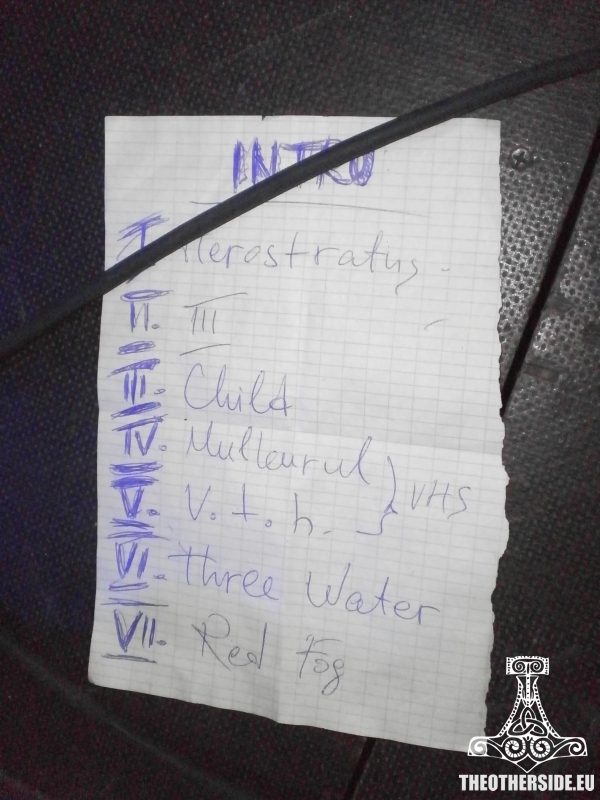 INTRO
I Herostratus.
II. III
III. Child
IV. VHS
V. V. t. h.
VI. Three Water
VII. Red Fog
THEOTHERSIDE.EU